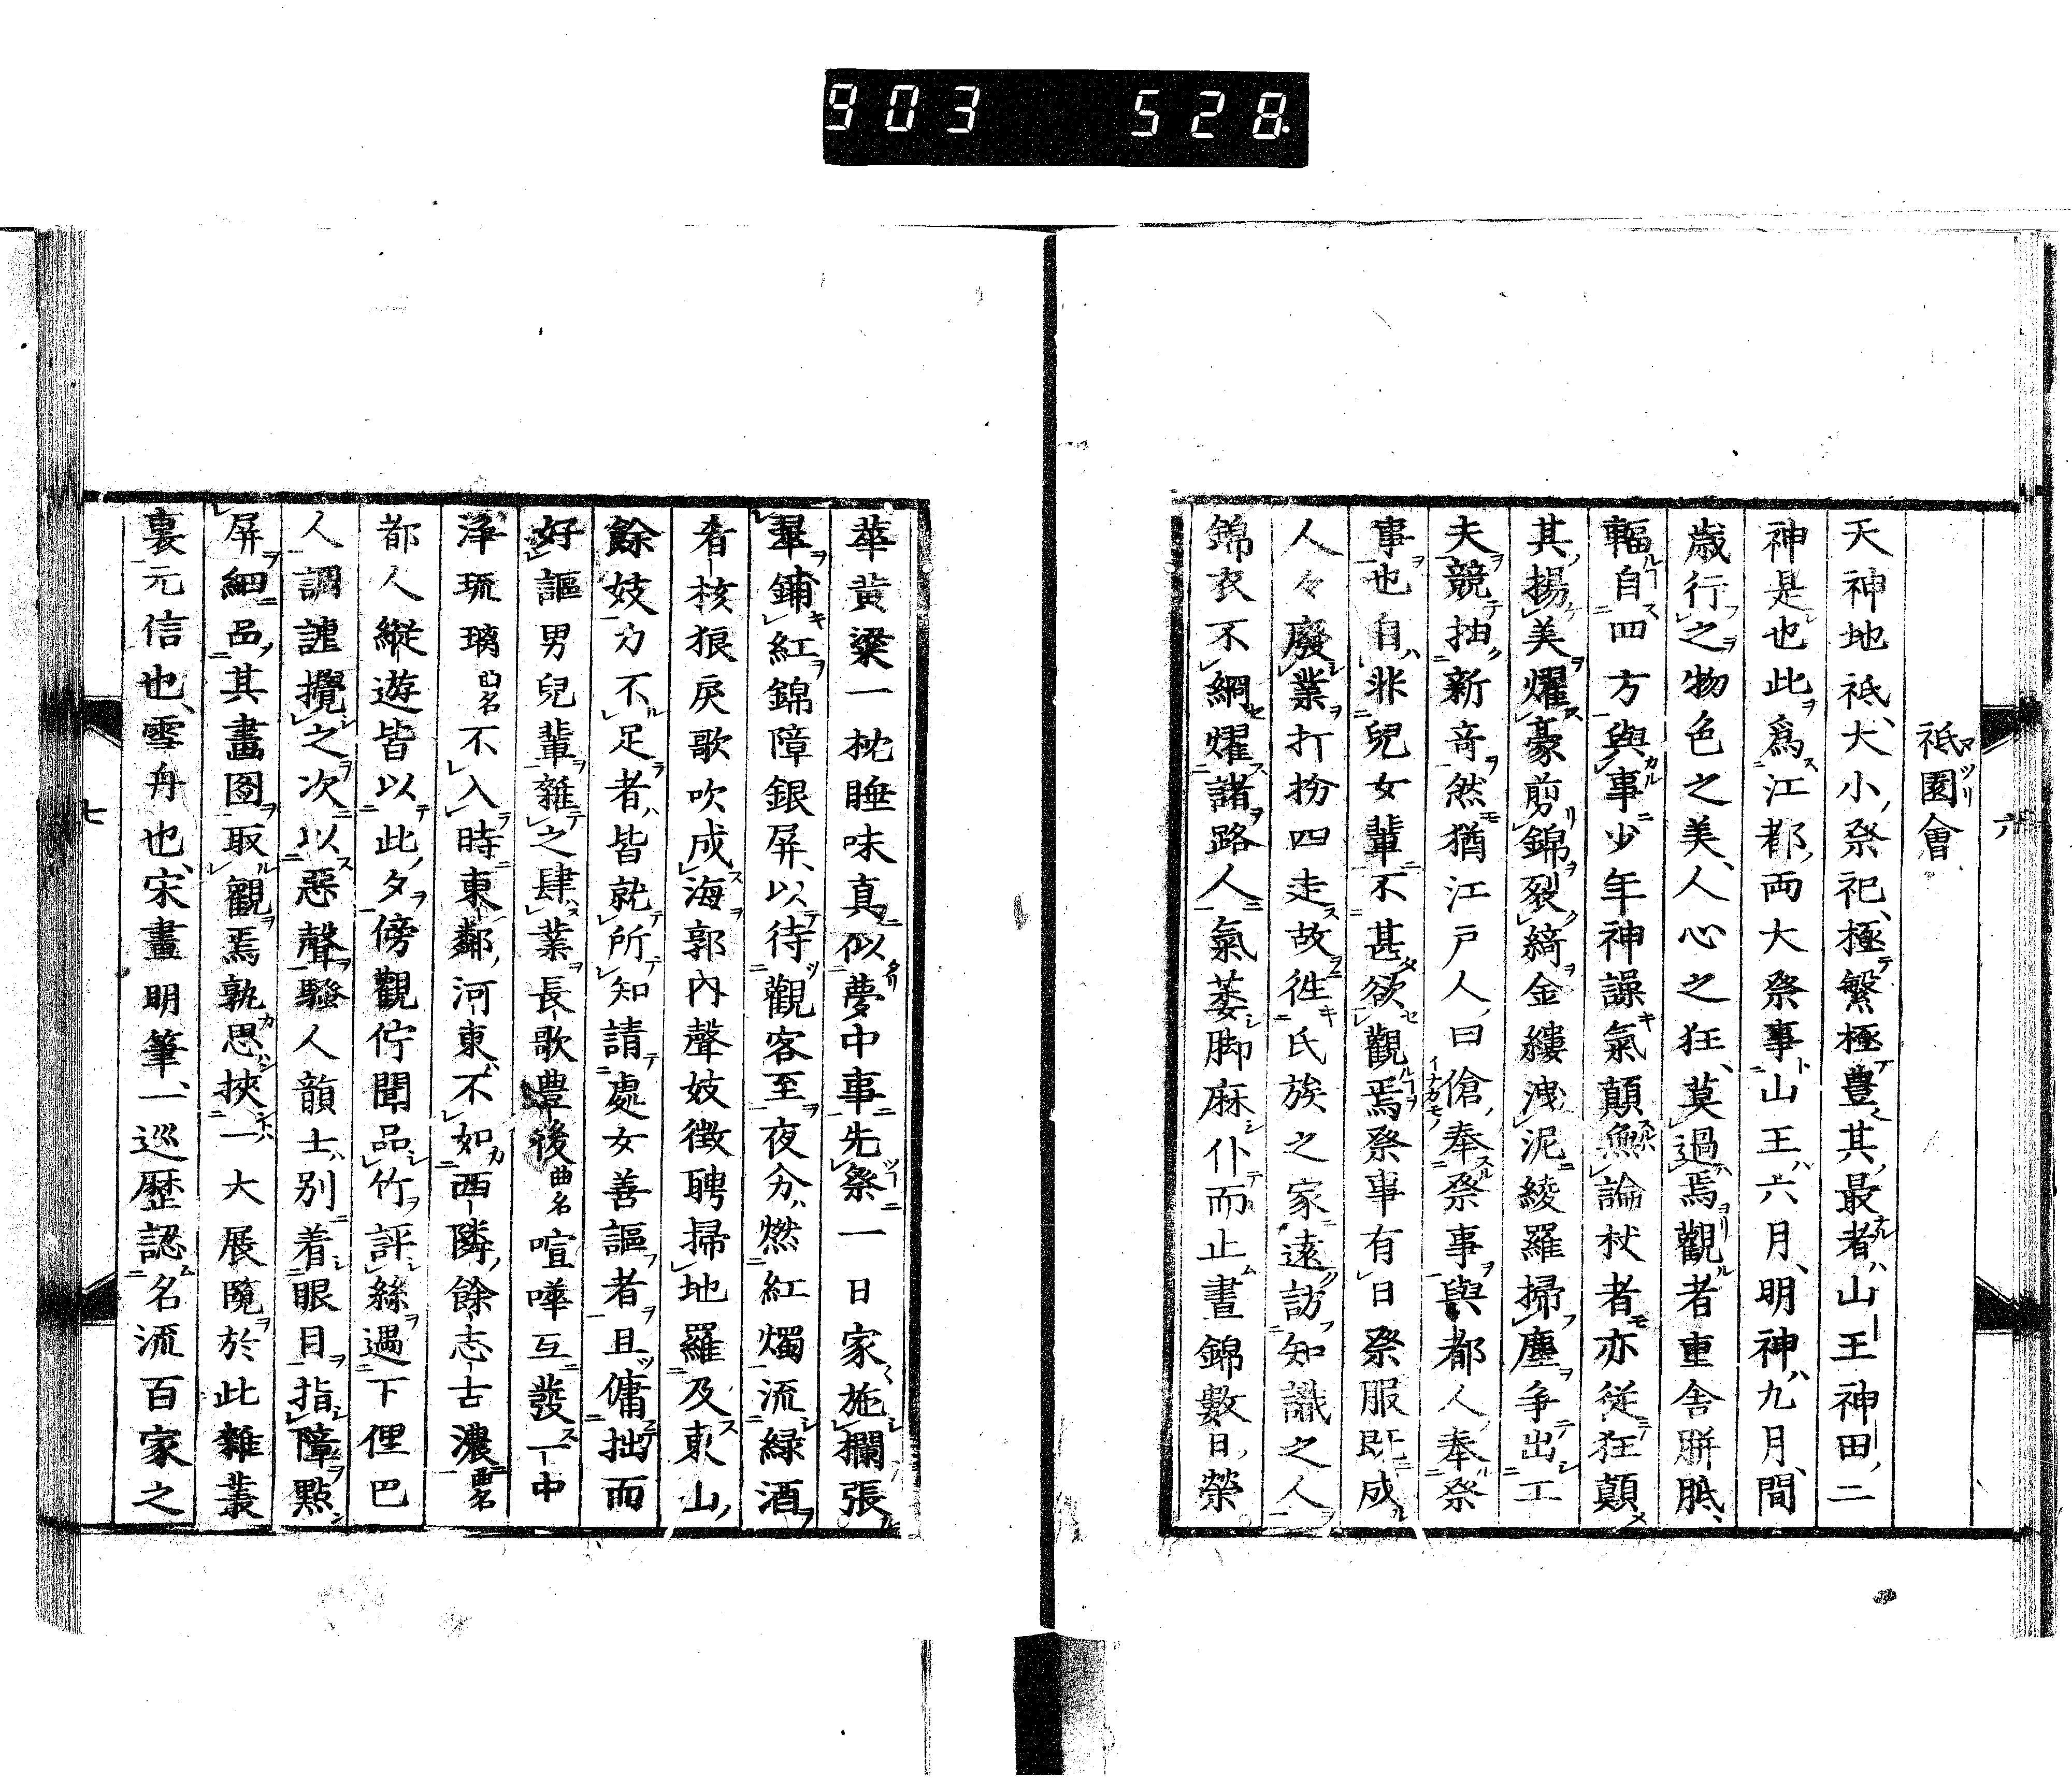 903 528
六
祇園會
天神地祇、大小祭祀、極繁極豊其最者山王神田二
神是也此爲江都両大祭事山王六月、明神九月、間
歳行之物色之美、人心之狂、莫過焉觀者重舎胼胝、
輻自四方與事少年神譟氣顛無論杖者亦従狂顛
其揚美燿豪剪錦裂綺金縷洩泥綾羅掃塵争出工
夫競抽新竒然猶江戸人曰傖奉祭事與都人奉祭
事也自非兒女輩不甚欲觀焉祭事有日祭服既成
人々廢業打扮四走故徃氏族之家遠訪知識之人
錦衣不綱燿諸路人氣萎脚麻仆而止晝錦數日榮
華黄粱一枕睡味真似夢中事先祭一日家施欄張
鋪紅錦障銀屏、以待觀客至夜分燃紅燭流緑酒
肴核狼戻歌吹成海郭内聲妓徴聘掃地羅及東山
餘妓力不足者皆就所知請處女善謳者且傭拙而
好謳男兒輩雜之肆業長歌豊後曲名喧嘩互發一中
浄琉璃曲名不入時東鄰河東不如西隣餘志古濃曲名
都人縦遊皆以此夕傍觀佇聞品竹評絲過下俚巴
人調謔攪之次以惡聲騒人韻士別着眼目指障點
屏細品其畫圖取觀焉孰思挾一大展覧於此雜叢
裏元信也、雪舟也、宋畫明筆、一巡歴認名流百家之
七